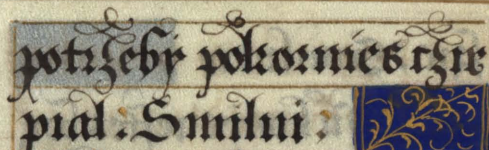 potrzeby pokornies czir
pial : Smilui :